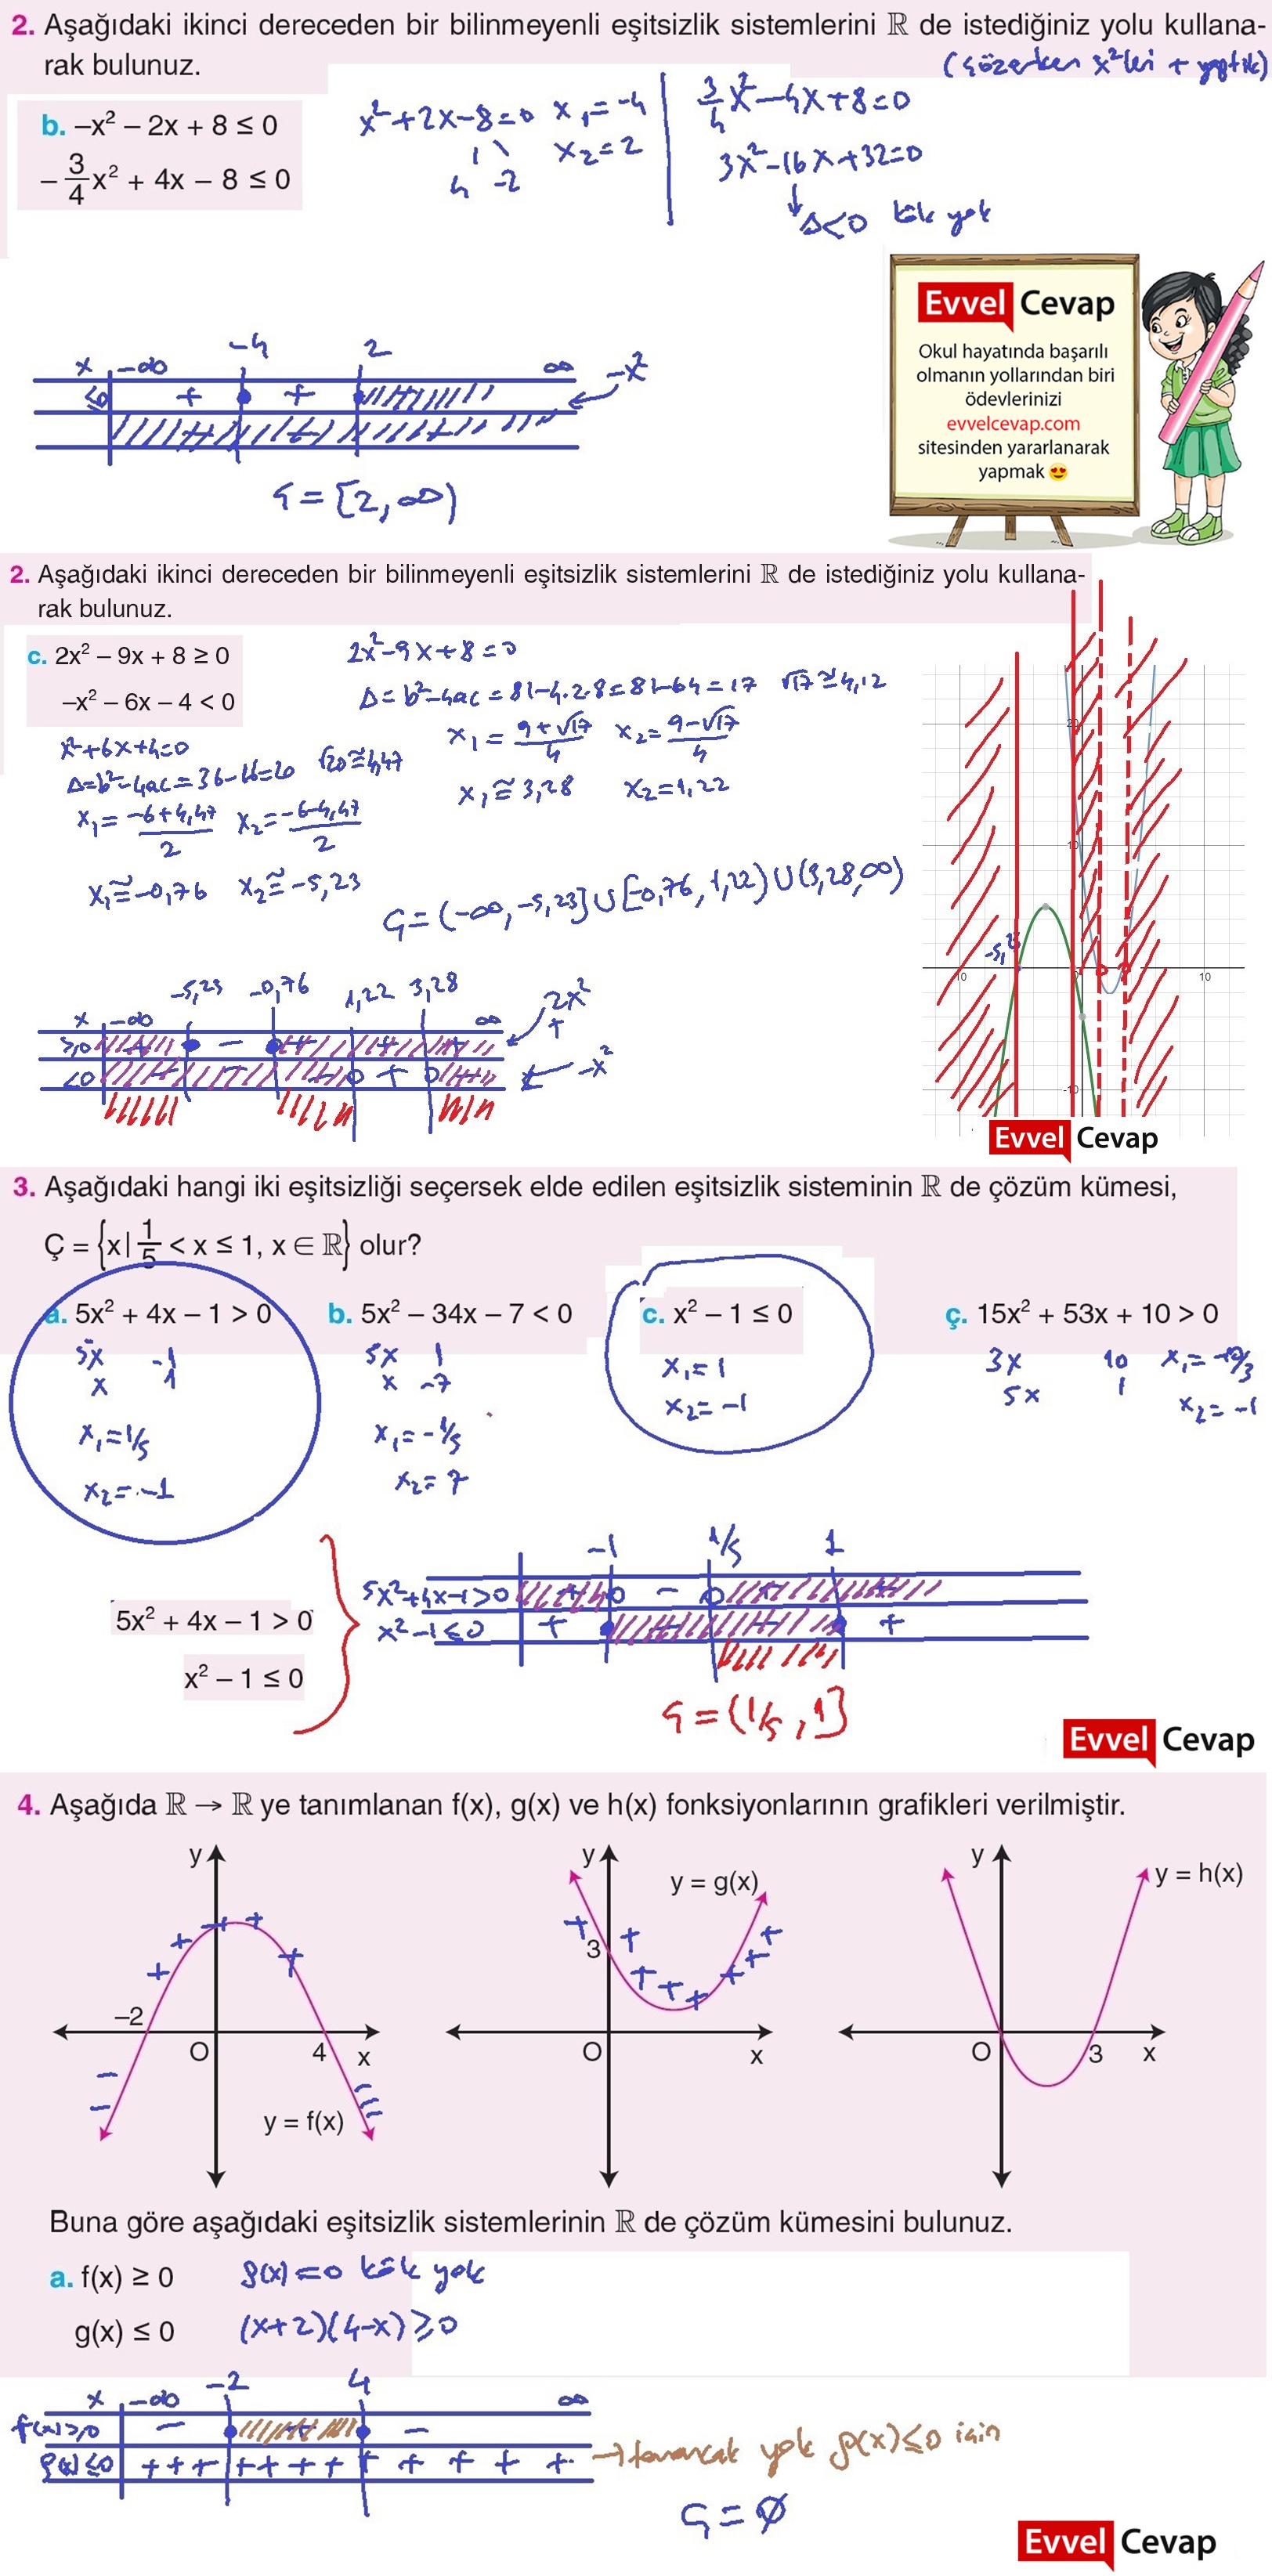 2. Aşağıdaki ikinci dereceden bir bilinmeyenli eşitsizlik sistemlerini ℝ de istediğiniz yolu kullana-
rak bulunuz.
(Çözerken x²leri + yaptık)
b. –x² – 2x + 8 ≤ 0
–3/4x² + 4x – 8 ≤ 0
x²+2x-8=0 x₁=-4
4 -2 x₂=2
3/4x²-4x+8=0
3x²-16x+32=0
Δ<0 kök yok
Evvel Cevap
Okul hayatında başarılı
olmanın yollarından biri
ödevlerinizi
evvelcevap.com
sitesinden yararlanarak
yapmak 😍
x -∞ -4 2 ∞
≤0 + + -x²
Ç=[2,∞)
2. Aşağıdaki ikinci dereceden bir bilinmeyenli eşitsizlik sistemlerini ℝ de istediğiniz yolu kullana-
rak bulunuz.
c. 2x² – 9x + 8 ≥ 0
–x² – 6x – 4 < 0
2x²-9x+8=0
Δ=b²-4ac=81-4.2.8=81-64=17 √17≅4,12
x₁=9+√17/4 x₂=9-√17/4
x₁≅3,28 x₂=1,22
x²+6x+4=0
Δ=b²-4ac=36-16=20 √20≅4,47
x₁=-6+4,47/2 x₂=-6-4,47/2
x₁≅-0,76 x₂≅-5,23
Ç=(-∞,-5,23]∪[-0,76,1,22)∪(3,28,∞)
x -∞ -5,23 -0,76 1,22 3,28 ∞
≥0 + - + + + 2x² +
<0 - - - + - -x²
10
-10
10
Evvel Cevap
3. Aşağıdaki hangi iki eşitsizliği seçersek elde edilen eşitsizlik sisteminin ℝ de çözüm kümesi,
Ç = {x| 1/5 < x ≤ 1, x ∈ ℝ} olur?
a. 5x² + 4x – 1 > 0 b. 5x² – 34x – 7 < 0 c. x² – 1 ≤ 0 ç. 15x² + 53x + 10 > 0
5x -1
x 1
x₁=1/5
x₂=-1
5x 1
x -7
x₁=-1/5
x₂=7
x₁=1
x₂=-1
3x 10 x₁=-10/3
5x 1 x₂=-1
5x² + 4x – 1 > 0
x² – 1 ≤ 0
-1 1/5 1
5x²+4x-1>0 + - + +
x²-1≤0 + - - +
Ç=(1/5,1]
Evvel Cevap
4. Aşağıda ℝ → ℝ ye tanımlanan f(x), g(x) ve h(x) fonksiyonlarının grafikleri verilmiştir.
y
–2
O 4 x
y = f(x)
y
y = g(x)
3
O x
y
y = h(x)
O 3 x
Buna göre aşağıdaki eşitsizlik sistemlerinin ℝ de çözüm kümesini bulunuz.
a. f(x) ≥ 0 g(x)=0 kök yok
g(x) ≤ 0 (x+2)(4-x)≥0
x -∞ -2 4 ∞
f(x)≥0 - + -
g(x)≤0 + + + + + + + + + + + → taranacak yok g(x)≤0 için
Ç=∅
Evvel Cevap